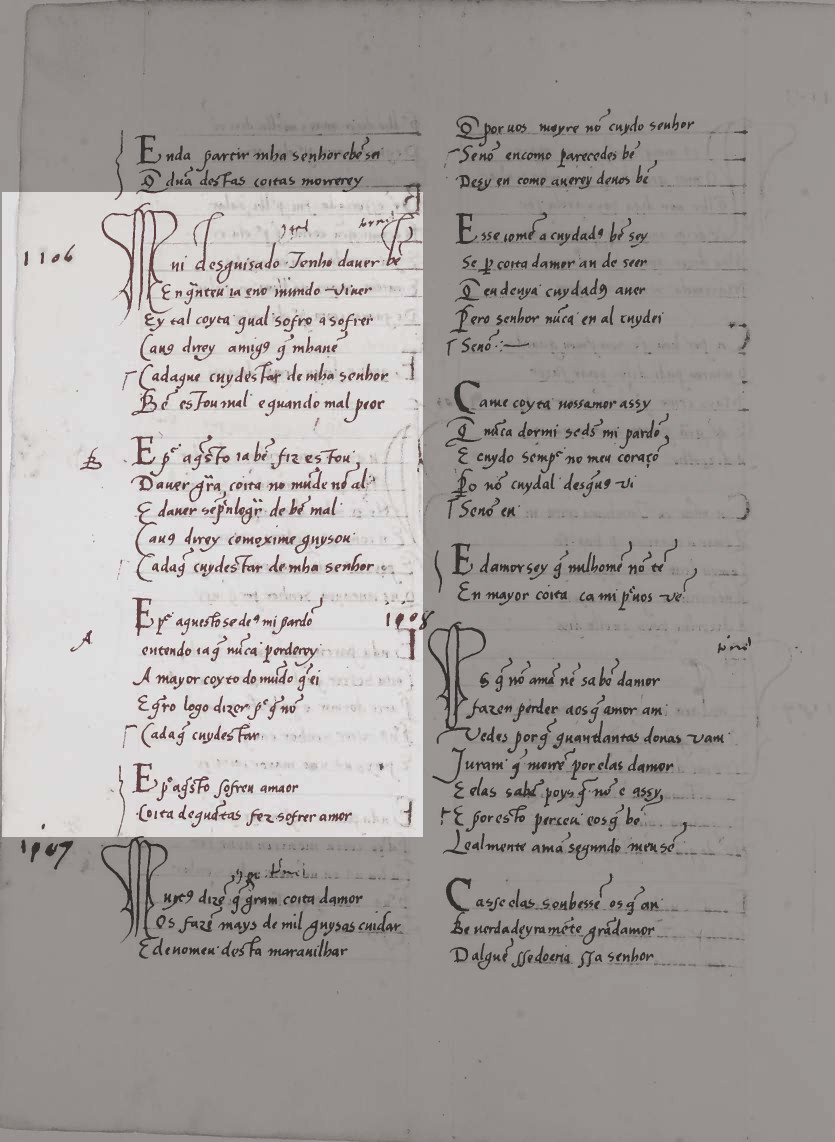 Enda partir mha senhor ebẽ sei
Q̃ dũa destas coitas morrerey
1106
Mui desguisado Tenho dauer bẽ
En q̃nteu ia eno mundo uiuer
Ey tal coyta qual sofro a sofrer
Ca us direy amigs q̃ mhanẽ
Cadaque cuydestar de mha senhor
Bẽ estou mal e quando mal peor
B
E pr agsto ia bẽ fiz estou
Dauer grã coita no mũde nõ al
E dauer sẽpenlogr de bẽ mal
Ca us direy comoxime guysou
Cadaq̃ cuydestar de mha senhor
A
E pr aguesto se des mi pardõ
entendo iaq̃ nũca perderey
A mayor coyto do mũdo q̃ ei
E q̃ro logo dizer pr q̃ nõ
Cadaq̃ cuydestar
E pr agsto sofreu amaor
Coita deguãtas fez sofrer amor
1107
Muytos dizẽ q̃ gram coita damor
Os fazẽ mays de mil guysas cuidar
E denomeu desta marauilhar
Q̃ por uos moyre nõ cuydo senhor
Senõ encomo parecedes bẽ
Desy en como auerey deuos bẽ
Esse iomẽ a cuydads bẽ sey
Se p̱ coita damor an de seer
Q̃ eu deuya cuydads auer
Pero senhor nũca en al cuydei
Senõ
Came coyta uossamor assy
Q̃ nũca dormi seds mi pardõ
E cuydo sempr no meu coraçõ
P̱o nõ cuydal desq̃us ui
Senõ en
E damor sey q̃ nulhomẽ nõ tẽ
En mayor coita ca mi pr uos uẽ
1108
Os q̃ nõ amã nẽ sabẽ damor
fazen perder aos q̃ amor am
Vedes porq̃ quantantas donas uam
Juram q̃ morrẽ por elas damor
E elas sabẽ poys q̃ nõ e assy
E por esto perceu eos q̃ bẽ
Lealmente amã segundo meu sẽ
Casse elas soubessẽ os q̃ an
Be uerdadeyramẽte grãdamor
Dalguẽ ssedoeria ssa senhor